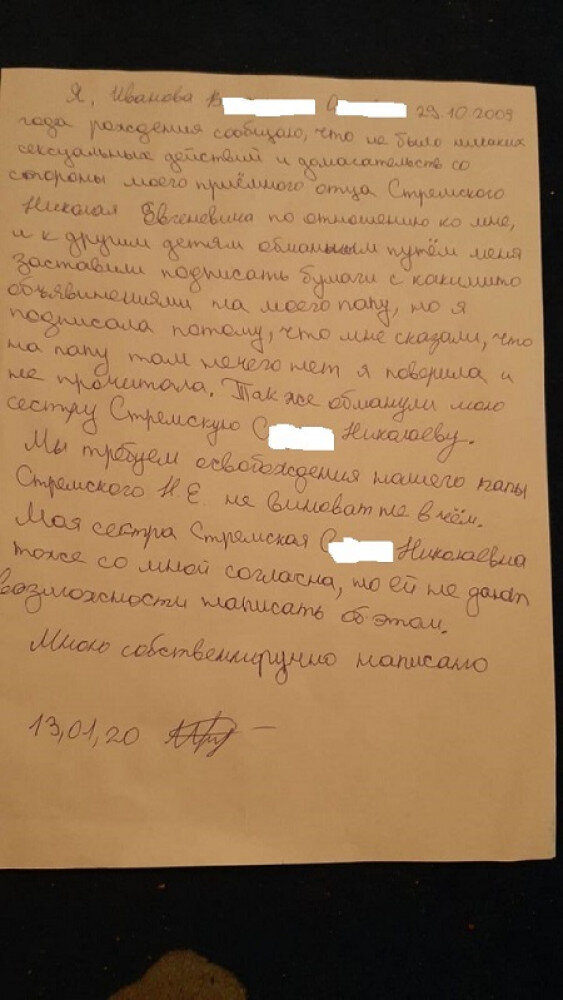 Я, Иванова В 29.10.2009
года рождения сообщаю, что не было никаких
сексуальных действий и домагательств со
стороны моего приёмного отца Стремского
Николая Евгеневича по отношению ко мне,
и к другим детям обманным путём меня
заставили подписать бумаги с какимито
объявинениями на моего папу, но я
подписала потому, что мне сказали, что
на папу там нечего нет я поворила и
не прочитала. Так же обманули мою
сестру Стремскую С Николаеву.
Мы требуем освобождения нашего папы
Стремского Н.Е. не виноват не в чём.
Моя сестра Стремская С Николаевна
тоже со мной согласна, но ей не дают
возможности написать об этом.
Мною собственниручно написано
13,01,20